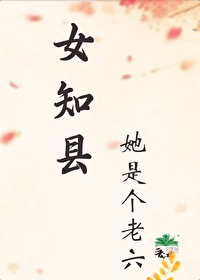 女知县
她是个老六